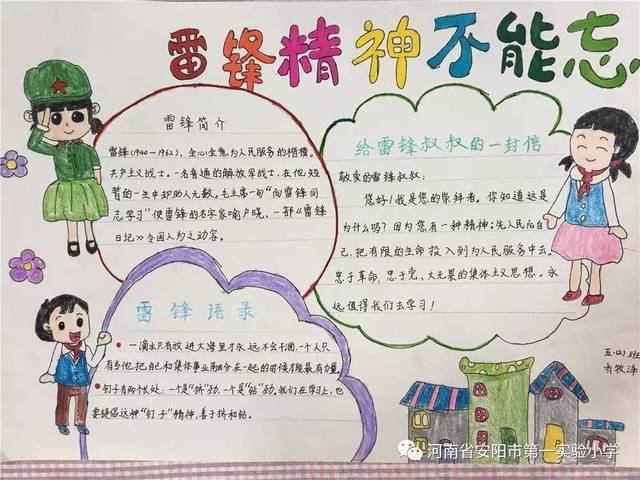 雷锋精神不能忘
雷锋简介
雷锋(1940-1962),全心全意为人民服务的楷模,
共产主义战士,一名普通的解放军战士,在他短
暂的一生中却助人无数。毛主席一句“向雷锋同
志学习”使雷锋的名字家喻户晓,一部《雷锋
日记》令国人为之动容。
给雷锋叔叔的一封信
敬爱的雷锋叔叔:
您好!我是您的崇拜者。你知道这是
为什么吗?因为您有一种精神:先人民后自
己,把有限的生命投入到为人民服务中去。
忠于革命,忠于党,大无畏的集体主义思想。永
远值得我们去学习!
雷锋语录
一滴水只有放进大海里才永远不会干涸,一个人只
有当他把自己和集体事业融合在一起的时候才能最有力量。
钉子有两个长处:一个是“挤”劲,一个是“钻”劲。我们在学习上,也
要提倡这种“钉子”精神,善于挤和钻。
五·(1)班
河南省安阳市第一实验小学